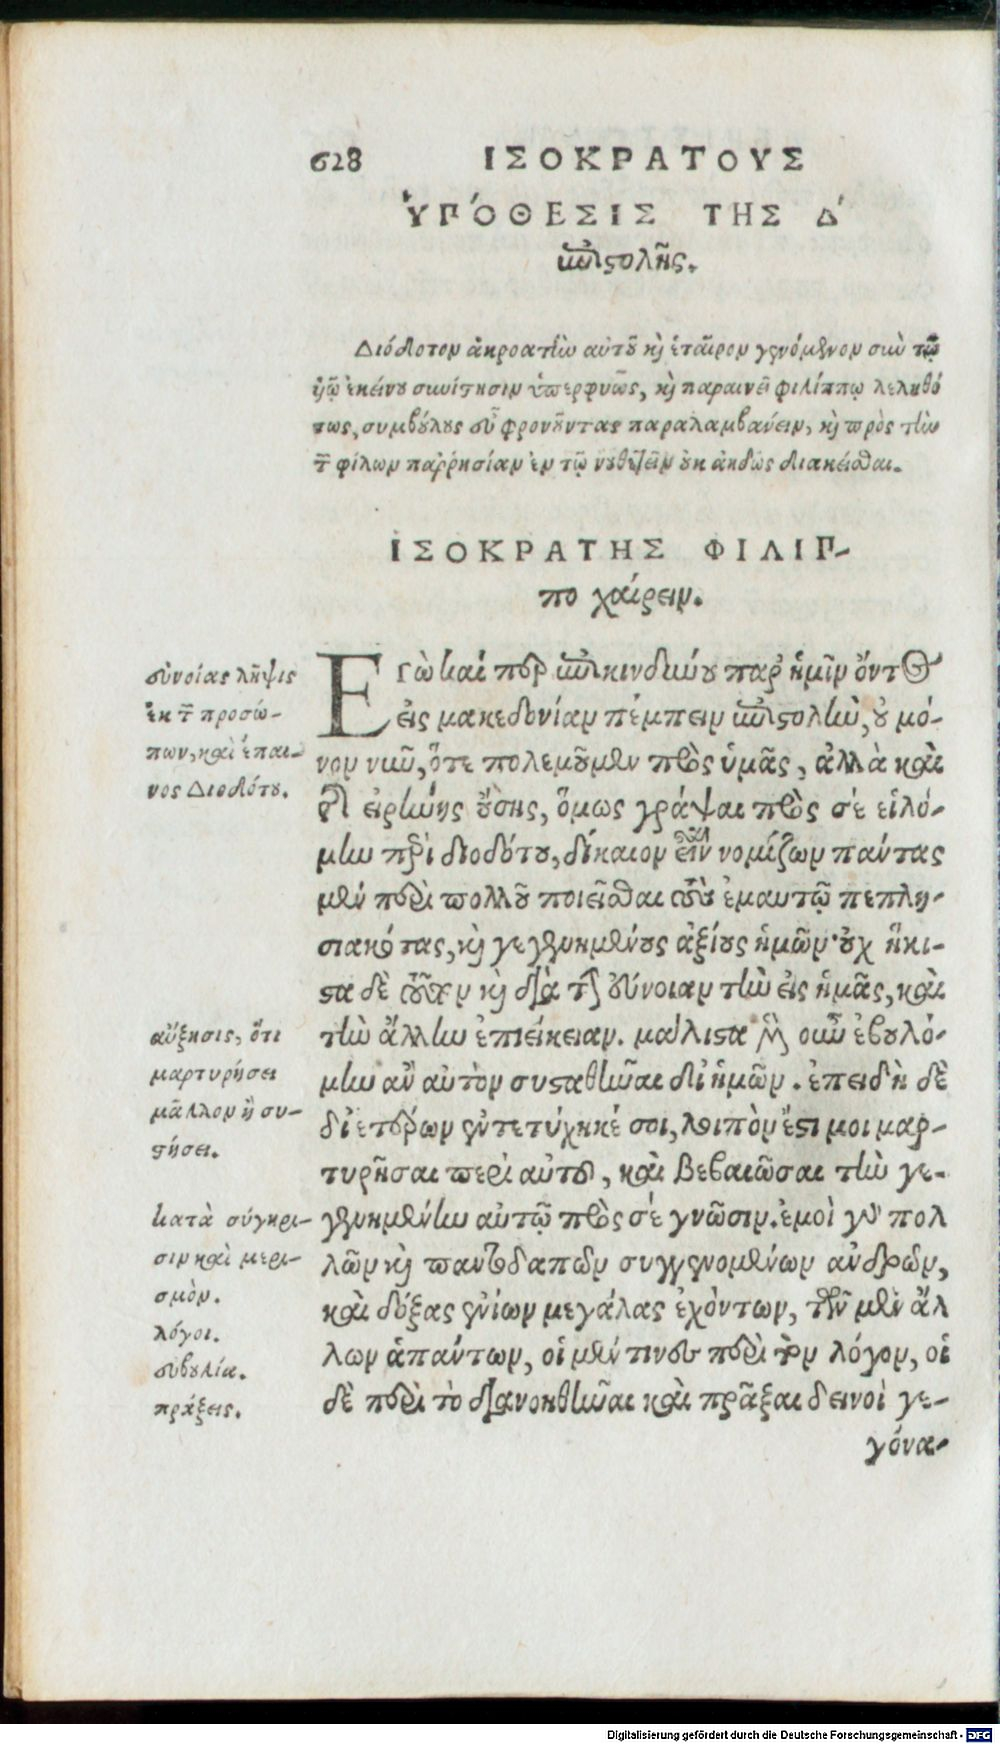 628 ΙΣΟΚΡΑΤΟΥΣ
ὙΠΌΘΕΣΙΣ ΤΗΣ Δ΄
ἐπιστολῆς.
Διόδοτον ἀκροατὴν αὐτοῦ καὶ ἑταῖρον γενόμενον σὺν τῷ
ἐκείνου συνίστησιν ὑπερφυῶς, καὶ παραινεῖ φιλίππῳ λεληθό
τως, συμβούλους εὖ φρονοῦντας παραλαμβάνειν, καὶ πρὸς τὴν
τῶν φίλων παῤῥησίαν ἐν τῷ νουθετεῖν οὐκ ἀηδῶς διακεῖσθαι.
ΙΣΟΚΡΑΤΗΣ ΦΙΛΙΠ-
πο χαίρειν.
Εγὼ καί περ ἐπικινδύνου παρ' ἡμῖν ὄντος
εἰς μακεδονίαν πέμπειν ἐπιστολὴν, οὐ μό-
νον νῦν, ὅτε πολεμοῦμεν πρὸς ὑμᾶς, ἀλλὰ καὶ
τῆς εἰρήνης οὔσης, ὅμως γράψαι πρὸς σέ εἱλό-
μην περὶ διοδότου, δίκαιον εἶναι νομίζων πάντας
μέν περὶ πολλοῦ ποιεῖσθαι τοὺς ἐμαυτῷ πεπλη-
σιακότας, καὶ γεγενημένους ἀξίους ἡμῶν· οὐχ ἥκι-
στα δὲ τοῦτον καὶ διὰ τὴν εὔνοιαν τὴν εἰς ἡμᾶς, καὶ
τὴν ἄλλην ἐπιείκειαν. μάλιστα μὲν οὖν ἐβουλό-
μην ἂν αὐτὸν συσταθῆναι δι' ἡμῶν. ἐπειδὴ δὲ
δι' ἑτέρων ἐντετύχηκέ σοι, λοιπὸν ἔστι μοι μαρ-
τυρῆσαι περὶ αὐτοῦ, καὶ βεβαιῶσαι τὴν γε-
γενημένην αὐτῷ πρὸς σέ γνῶσιν. ἐμοὶ γὰρ πολ
λῶν καὶ παντοδαπῶν συγγενομένων ἀνδρῶν,
καὶ δόξας ἐνίων μεγάλας ἐχόντων, τῶν μὲν ἄλ
λων ἁπάντων, οἱ μέν τινες περὶ τὸν λόγον, οἱ
δὲ περὶ τὸ διανοηθῆναι καὶ πρᾶξαι δεινοὶ γε-
γόνα-
εὐνοίας λῆψις
ἐκ τῶν προσώ-
πων, καὶ ἔπαι-
νος Διοδότου.
αὔξησις, ὅτι
μαρτυρήσει
μᾶλλον ἢ συ-
στήσει.
κατὰ σύγκρι-
σιν καὶ μερι-
σμὸν.
λόγοι.
εὐβουλία.
πράξεις.
Digitalisierung gefördert durch die Deutsche Forschungsgemeinschaft - DFG